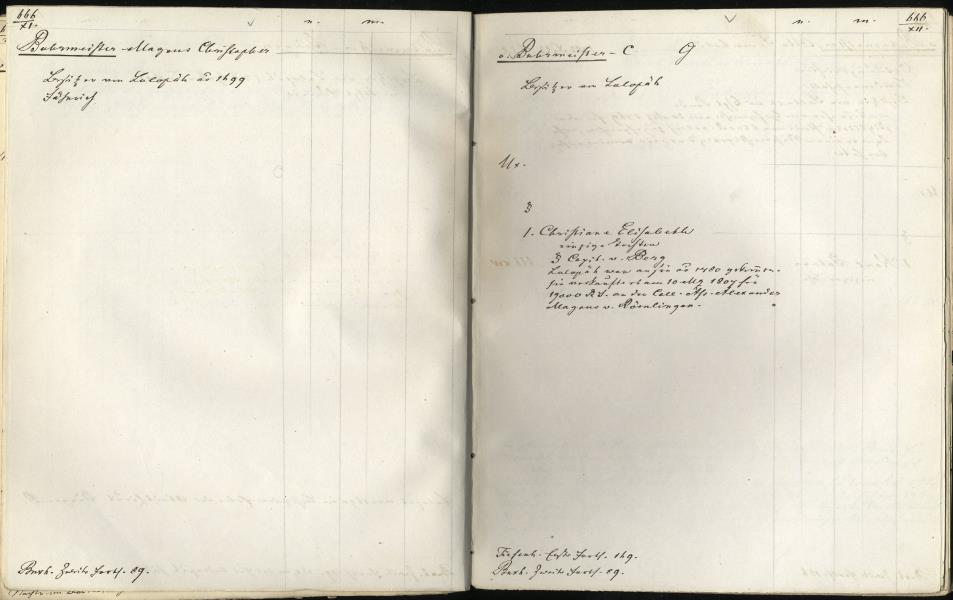 666
XI.
n. m.
Buhrmeister Magnus Christopher
Besitzer von Lalopäh ao 1699
Fähnrich
Buxh. Zweite Forts. 89.
666
XII.
n. m.
v. Buhrmeister - C G
Besitzer von Lalopäh
Ux.
1. Christiane Elisabeth
einzige Tochter
Capit. v. Berg
Lalopäh war an sie ao 1780 gekommen.
sie verkaufte es am 10 Mg 1807 für
19000 R. S. an den Coll. Ass. Alexander
Magnus v.
Erste Forts. 169.
Buxh. Zweite Forts. 89.